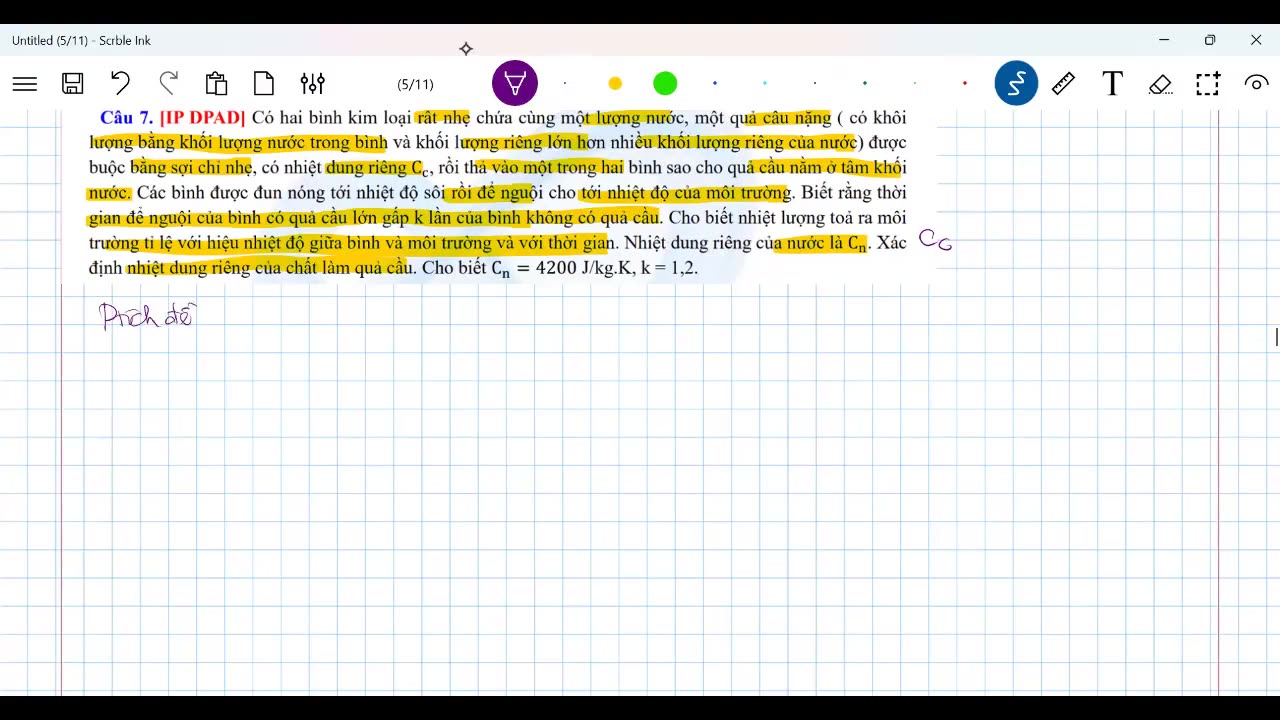 Untitled (5/11) - Scrble Ink
(5/11)
T
Câu 7. [IP DPAD] Có hai bình kim loại rất nhẹ chứa cùng một lượng nước, một quả cầu nặng ( có khối
lượng bằng khối lượng nước trong bình và khối lượng riêng lớn hơn nhiều khối lượng riêng của nước) được
buộc bằng sợi chỉ nhẹ, có nhiệt dung riêng Cc, rồi thả vào một trong hai bình sao cho quả cầu nằm ở tâm khối
nước. Các bình được đun nóng tới nhiệt độ sôi rồi để nguội cho tới nhiệt độ của môi trường. Biết rằng thời
gian để nguội của bình có quả cầu lớn gấp k lần của bình không có quả cầu. Cho biết nhiệt lượng toả ra môi
trường tỉ lệ với hiệu nhiệt độ giữa bình và môi trường và với thời gian. Nhiệt dung riêng của nước là Cn. Xác
Cc
định nhiệt dung riêng của chất làm quả cầu. Cho biết Cn = 4200 J/kg.K, k = 1,2.
đề